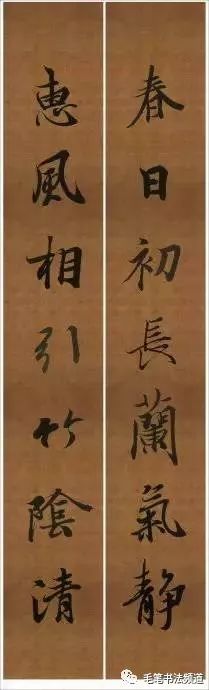 春日初長蘭氣靜
惠風相引竹陰清
毛笔书法频道